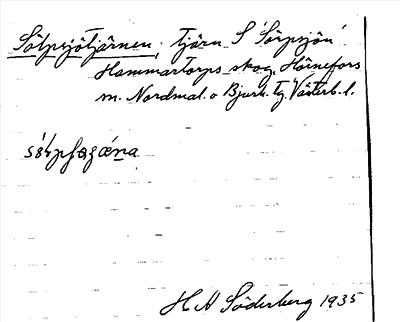 Sölpsjötjärnen, tjärn S Sörpsjön
Hammartorps skog, Hörnefors
m. Nordmal. o Bjurh. tg. Västerb. l.
H N Söderberg 1935